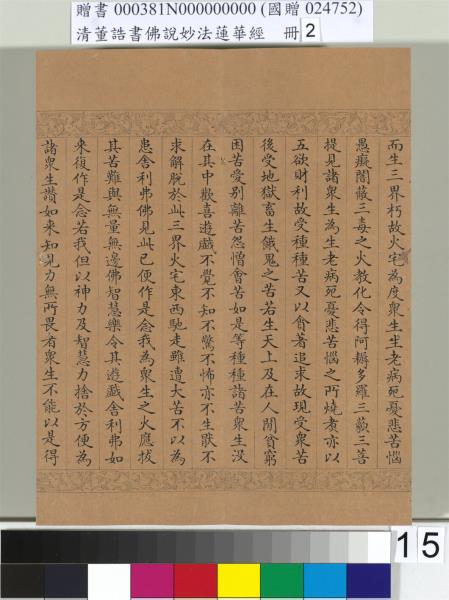 贈書 000381N000000000 (國贈 024752)
清董誥書佛說妙法蓮華經 冊 2
而生三界朽故火宅為度眾生生老病死憂悲苦惱
愚癡闇蔽三毒之火教化令得阿耨多羅三藐三菩
提見諸眾生為生老病死憂悲苦惱之所燒煮亦以
五欲財利故受種種苦又以貪著追求故現受眾苦
後受地獄畜生餓鬼之苦若生天上及在人間貧窮
困苦愛別離苦怨憎會苦如是等種種諸苦眾生沒
在其中歡喜遊戲不覺不知不驚不怖亦不生厭不
求解脫於此三界火宅東西馳走雖遭大苦不以為
患舍利弗佛見此已便作是念我為眾生之火應拔
其苦難與無量無邊佛智慧樂令其遊戲舍利弗如
來復作是念若我但以神力及智慧力捨於方便為
諸眾生讚如來知見力無所畏者眾生不能以是得
15